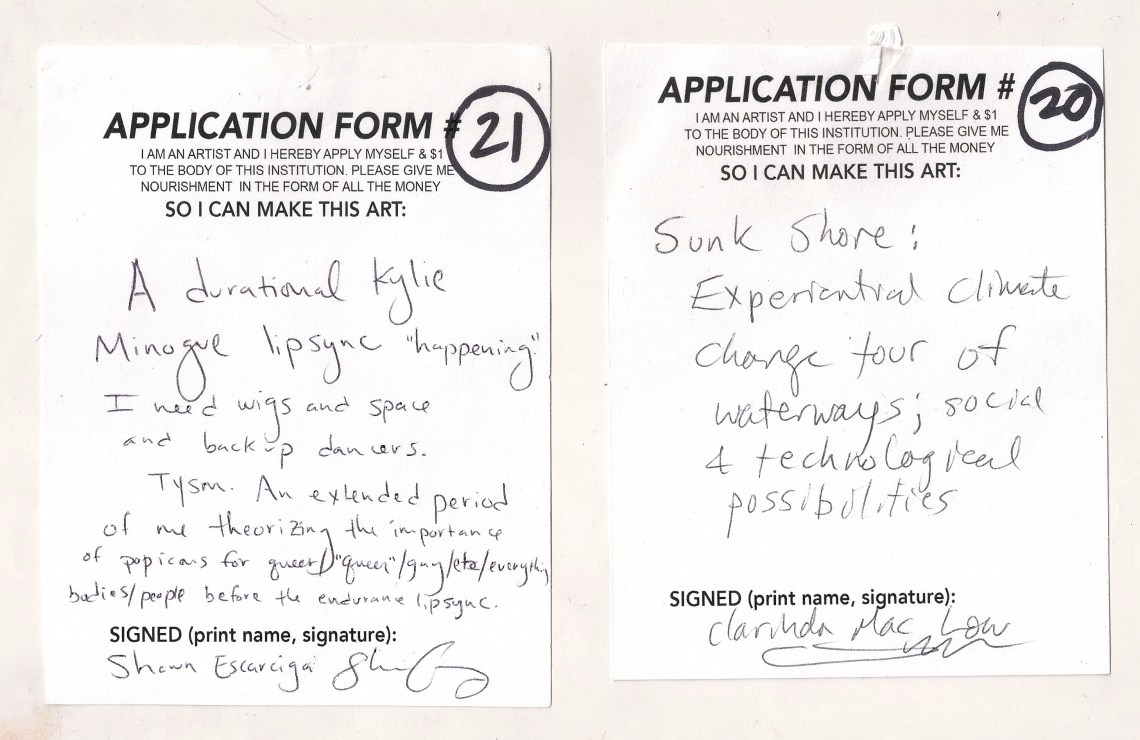 APPLICATION FORM # 21
I AM AN ARTIST AND I HEREBY APPLY MYSELF & $1
TO THE BODY OF THIS INSTITUTION. PLEASE GIVE ME
NOURISHMENT IN THE FORM OF ALL THE MONEY
SO I CAN MAKE THIS ART:
A durational Kylie
Minogue lipsync "happening."
I need wigs and space
and backup dancers.
Tysm. An extended period
of me theorizing the importance
of popicons for queer/"queer"/gay/etc/everything
bodies/people before the endurance lipsync.
SIGNED (print name, signature):
Shawn Escarciga
APPLICATION FORM # 20
I AM AN ARTIST AND I HEREBY APPLY MYSELF & $1
TO THE BODY OF THIS INSTITUTION. PLEASE GIVE ME
NOURISHMENT IN THE FORM OF ALL THE MONEY
SO I CAN MAKE THIS ART:
Sunk Shore:
Experiential climate
change tour of
waterways; social
& technological
possibilities
SIGNED (print name, signature):
Clarinda Mac Low